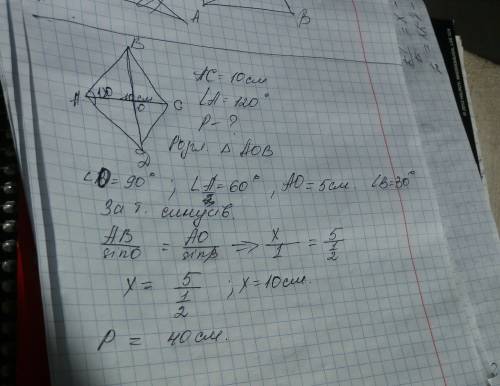 A
B
B
A 120 10см C
O
D
AC = 10см
∠A = 120°
P - ?
Розгл. △ AOB
∠O = 90° ; ∠A/2 = 60° , AO = 5см. ∠B = 30°
За т. синусів.
AB/sinO = AO/sinβ => x/1 = 5/(1/2)
x = 5/(1/2) ; x = 10см.
P = 40см.